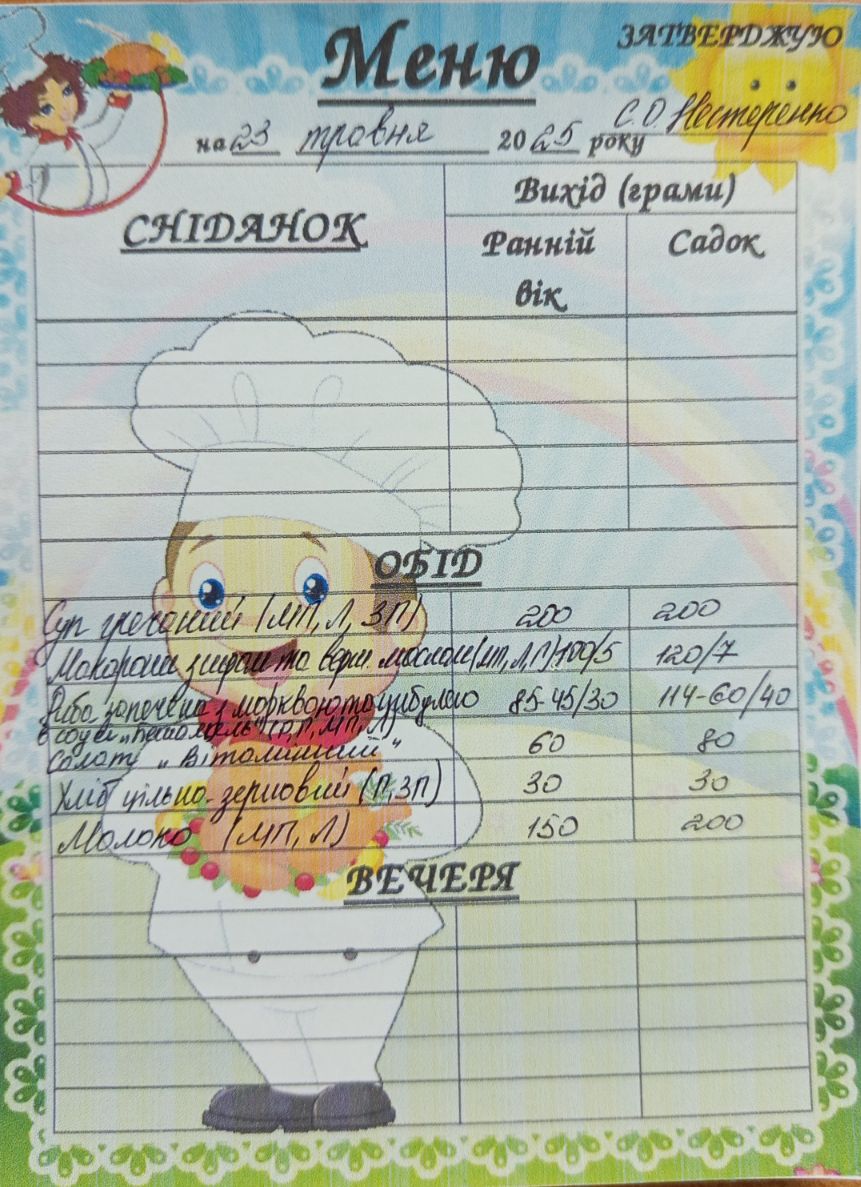 Меню
ЗАТВЕРДЖУЮ
С.О. Нестеренко
на 23 травня 2025 року
СНІДАНОК
Вихід (грами)
Ранній вік
Садок
ОБІД
Суп гречаний (МП, Л, ЗП) 200 200
Макарони з сиром та верш. маслом (МП, Л, Г) 100/5 120/7
Риба запечена з морквою та цибулею 85-45/30 114-60/40
в соусі „Бешамель" (Р, П, МП, Л)
Салат „Вітамінний" 60 80
Хліб цільно-зерновий (П, ЗП) 30 30
Молоко (МП, Л) 150 200
ВЕЧЕРЯ